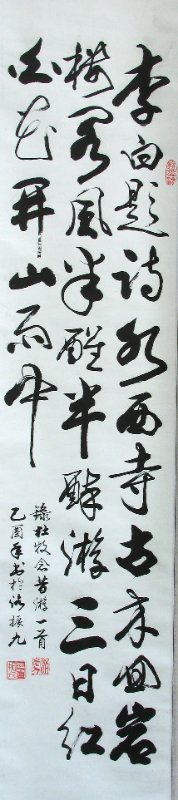 李白題詩水西寺古木回岩
楼阁風半醒半醉游三日红
白花開山雨中
錄杜牧念昔游一首
乙酉年书於洛振九